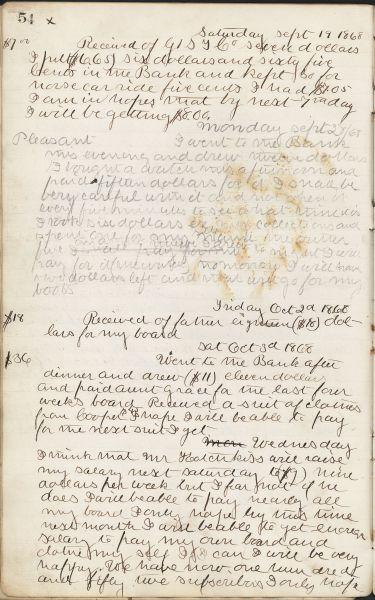 54 x
Saturday Sept 19 1868
$7 00 Received of G I S I Co seven dollars
I put ($6,65) six dollars and sixty five
cents in the Bank and kept 30 for
horse car ride five cents I had $1.05
I am in hopes that by next Friday
I will be getting $8.00
Monday Sept 21/68
Pleasant I went to the Bank
this evening and drew dollars
I bought a watch this afternoon and
paid fifteen dollars for it I shall be
very careful with it and not open it
every five minutes to see what time it is
I took six dollars collections and
for my
I will
pay for it I will have
two dollars left and will use go for my
boots
Friday Oct 2d 1868
$18 Received of father eighteen ($18) dol-
lars for my board
Sat Oct 3d 1868
$36 Went to the Bank after
dinner and drew ($11) eleven dollars
and paid aunt Grace for the last four
weeks board Received a suit of clothes
from Cooper I hope I will be able to pay
for the next suit I get
Wednesday
I think that Mr Hotchkiss will raise
my salary next saturday to nine
dollars per week but I fear not if he
does I will be able to pay nearly all
my board I only hope by this time
next month I will be able to get enough
salary to pay my own board and
clothe my self If I can I will be very
happy. We have now one hundred
and fifty five subscribers I only hope